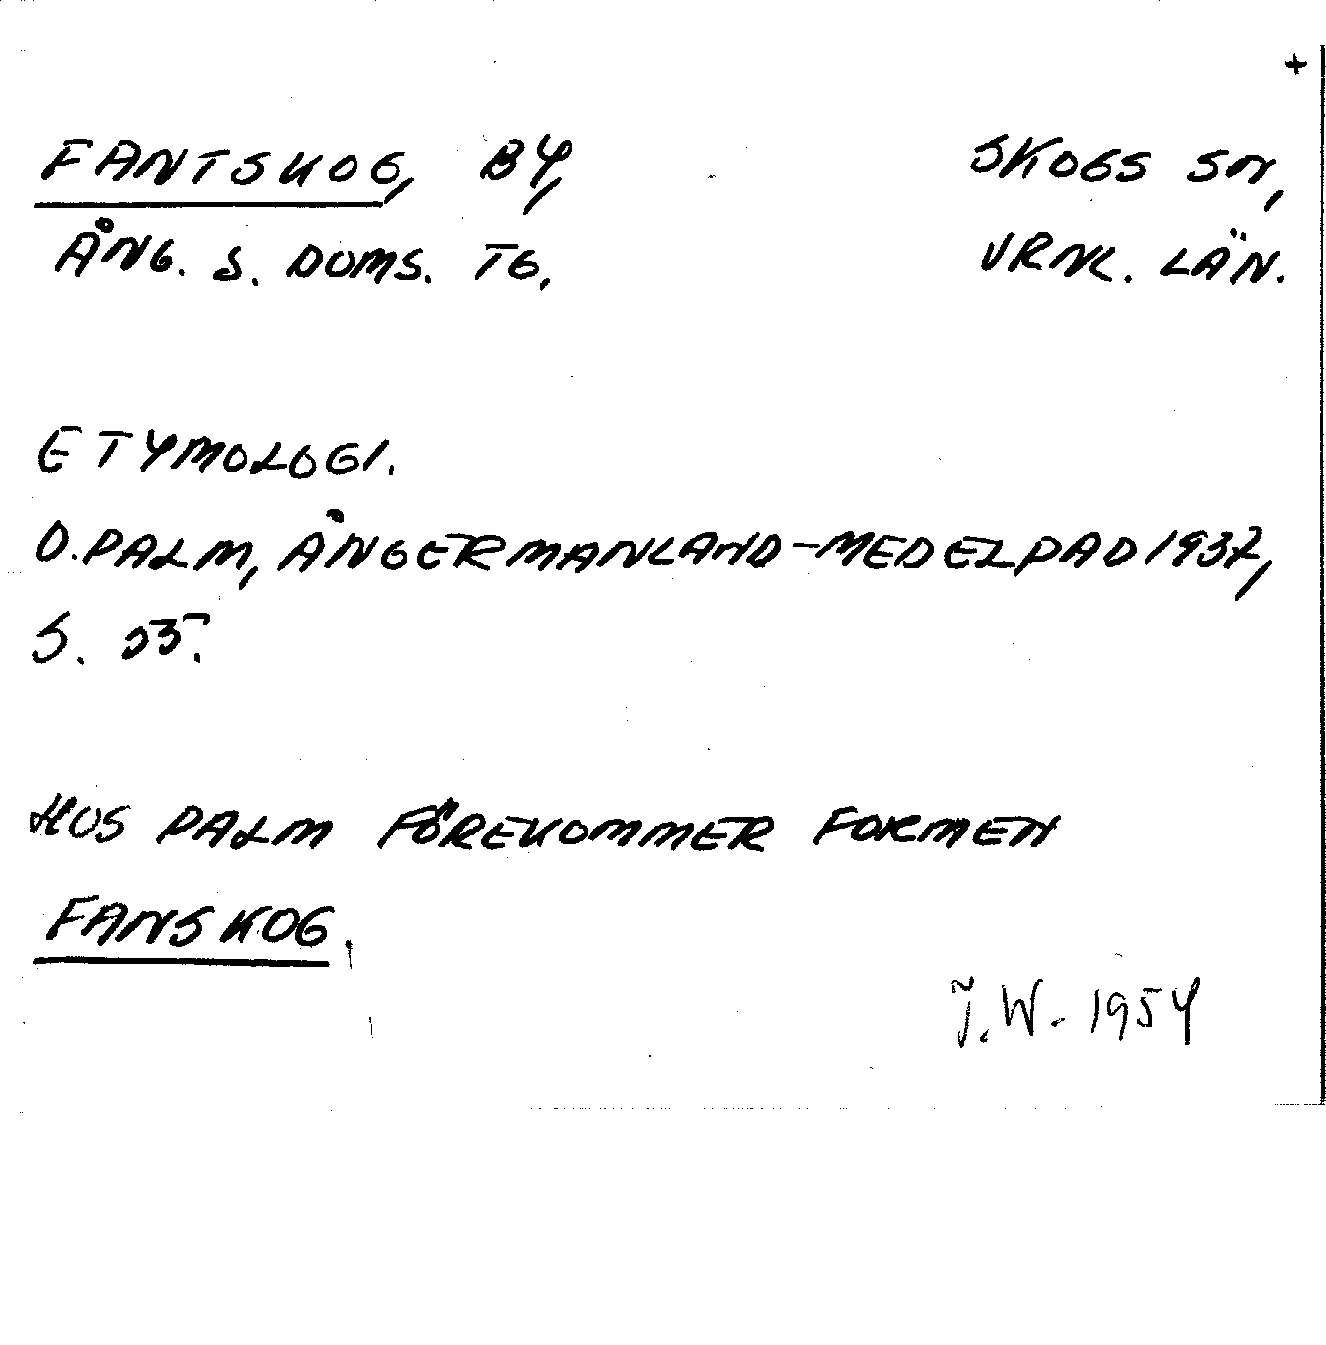 +
FANTSKOG, BY, SKOGS SN,
ÅNG. S. DOMS. TG, VRNL. LÄN.
ETYMOLOGI.
O. PALM, ÅNGERMANLAND-MEDELPAD 1937,
S. 35.
HOS PALM FÖREKOMMER FORMEN
FANSKOG.
J. W. 1954